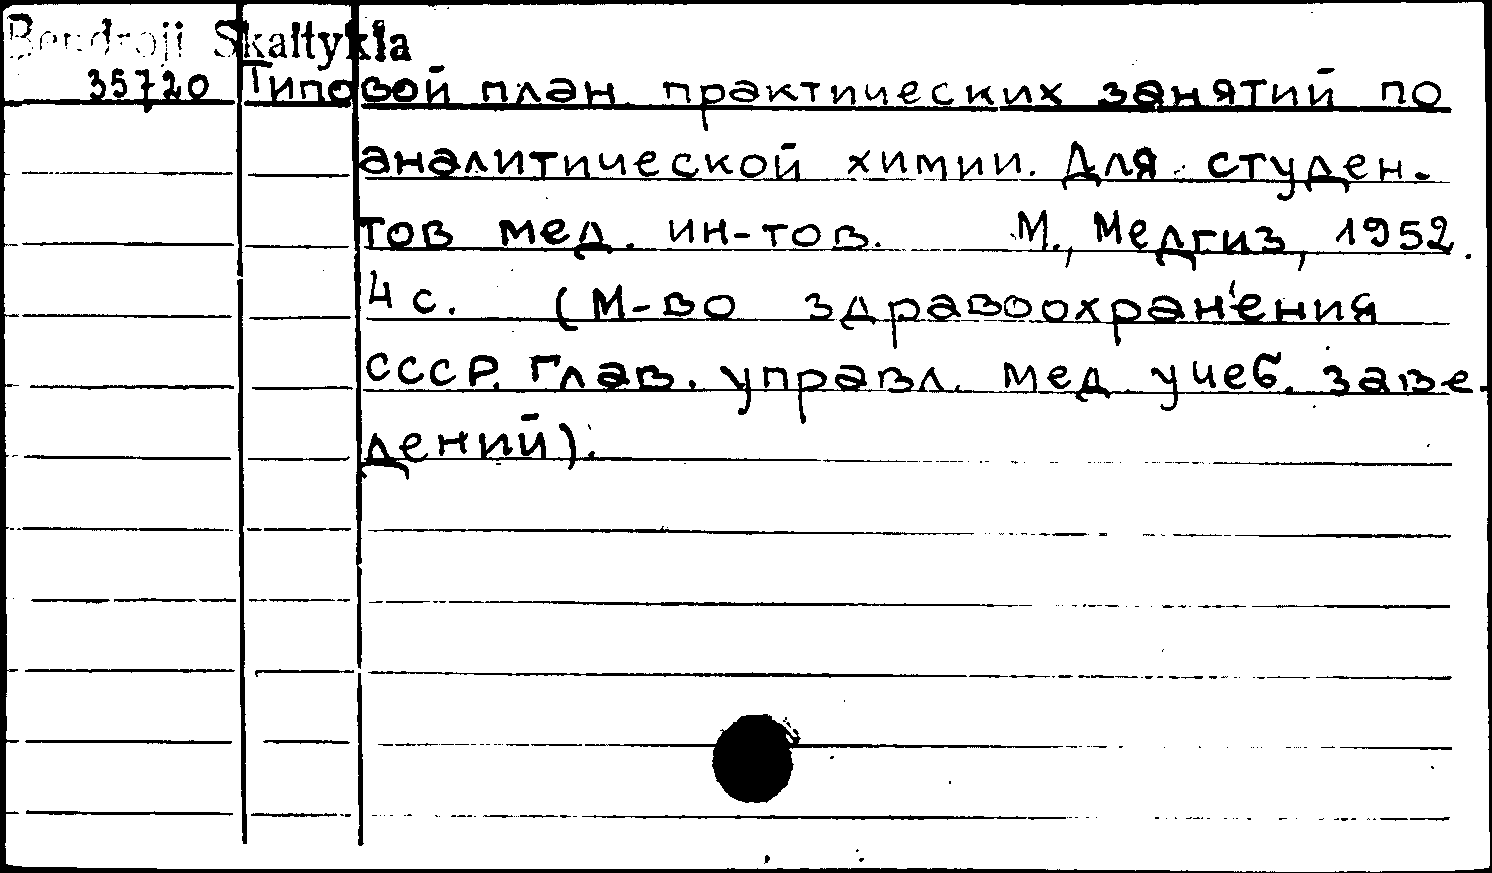 Bendroji Skaitykla
35720 Типовой план практических занятий по
аналитической химии. Для студен-
тов мед. ин-тов. М., Медгиз, 1952.
4 с. (М-во здравоохранения
СССР. Глав. управл. мед. учеб. заве-
дений).